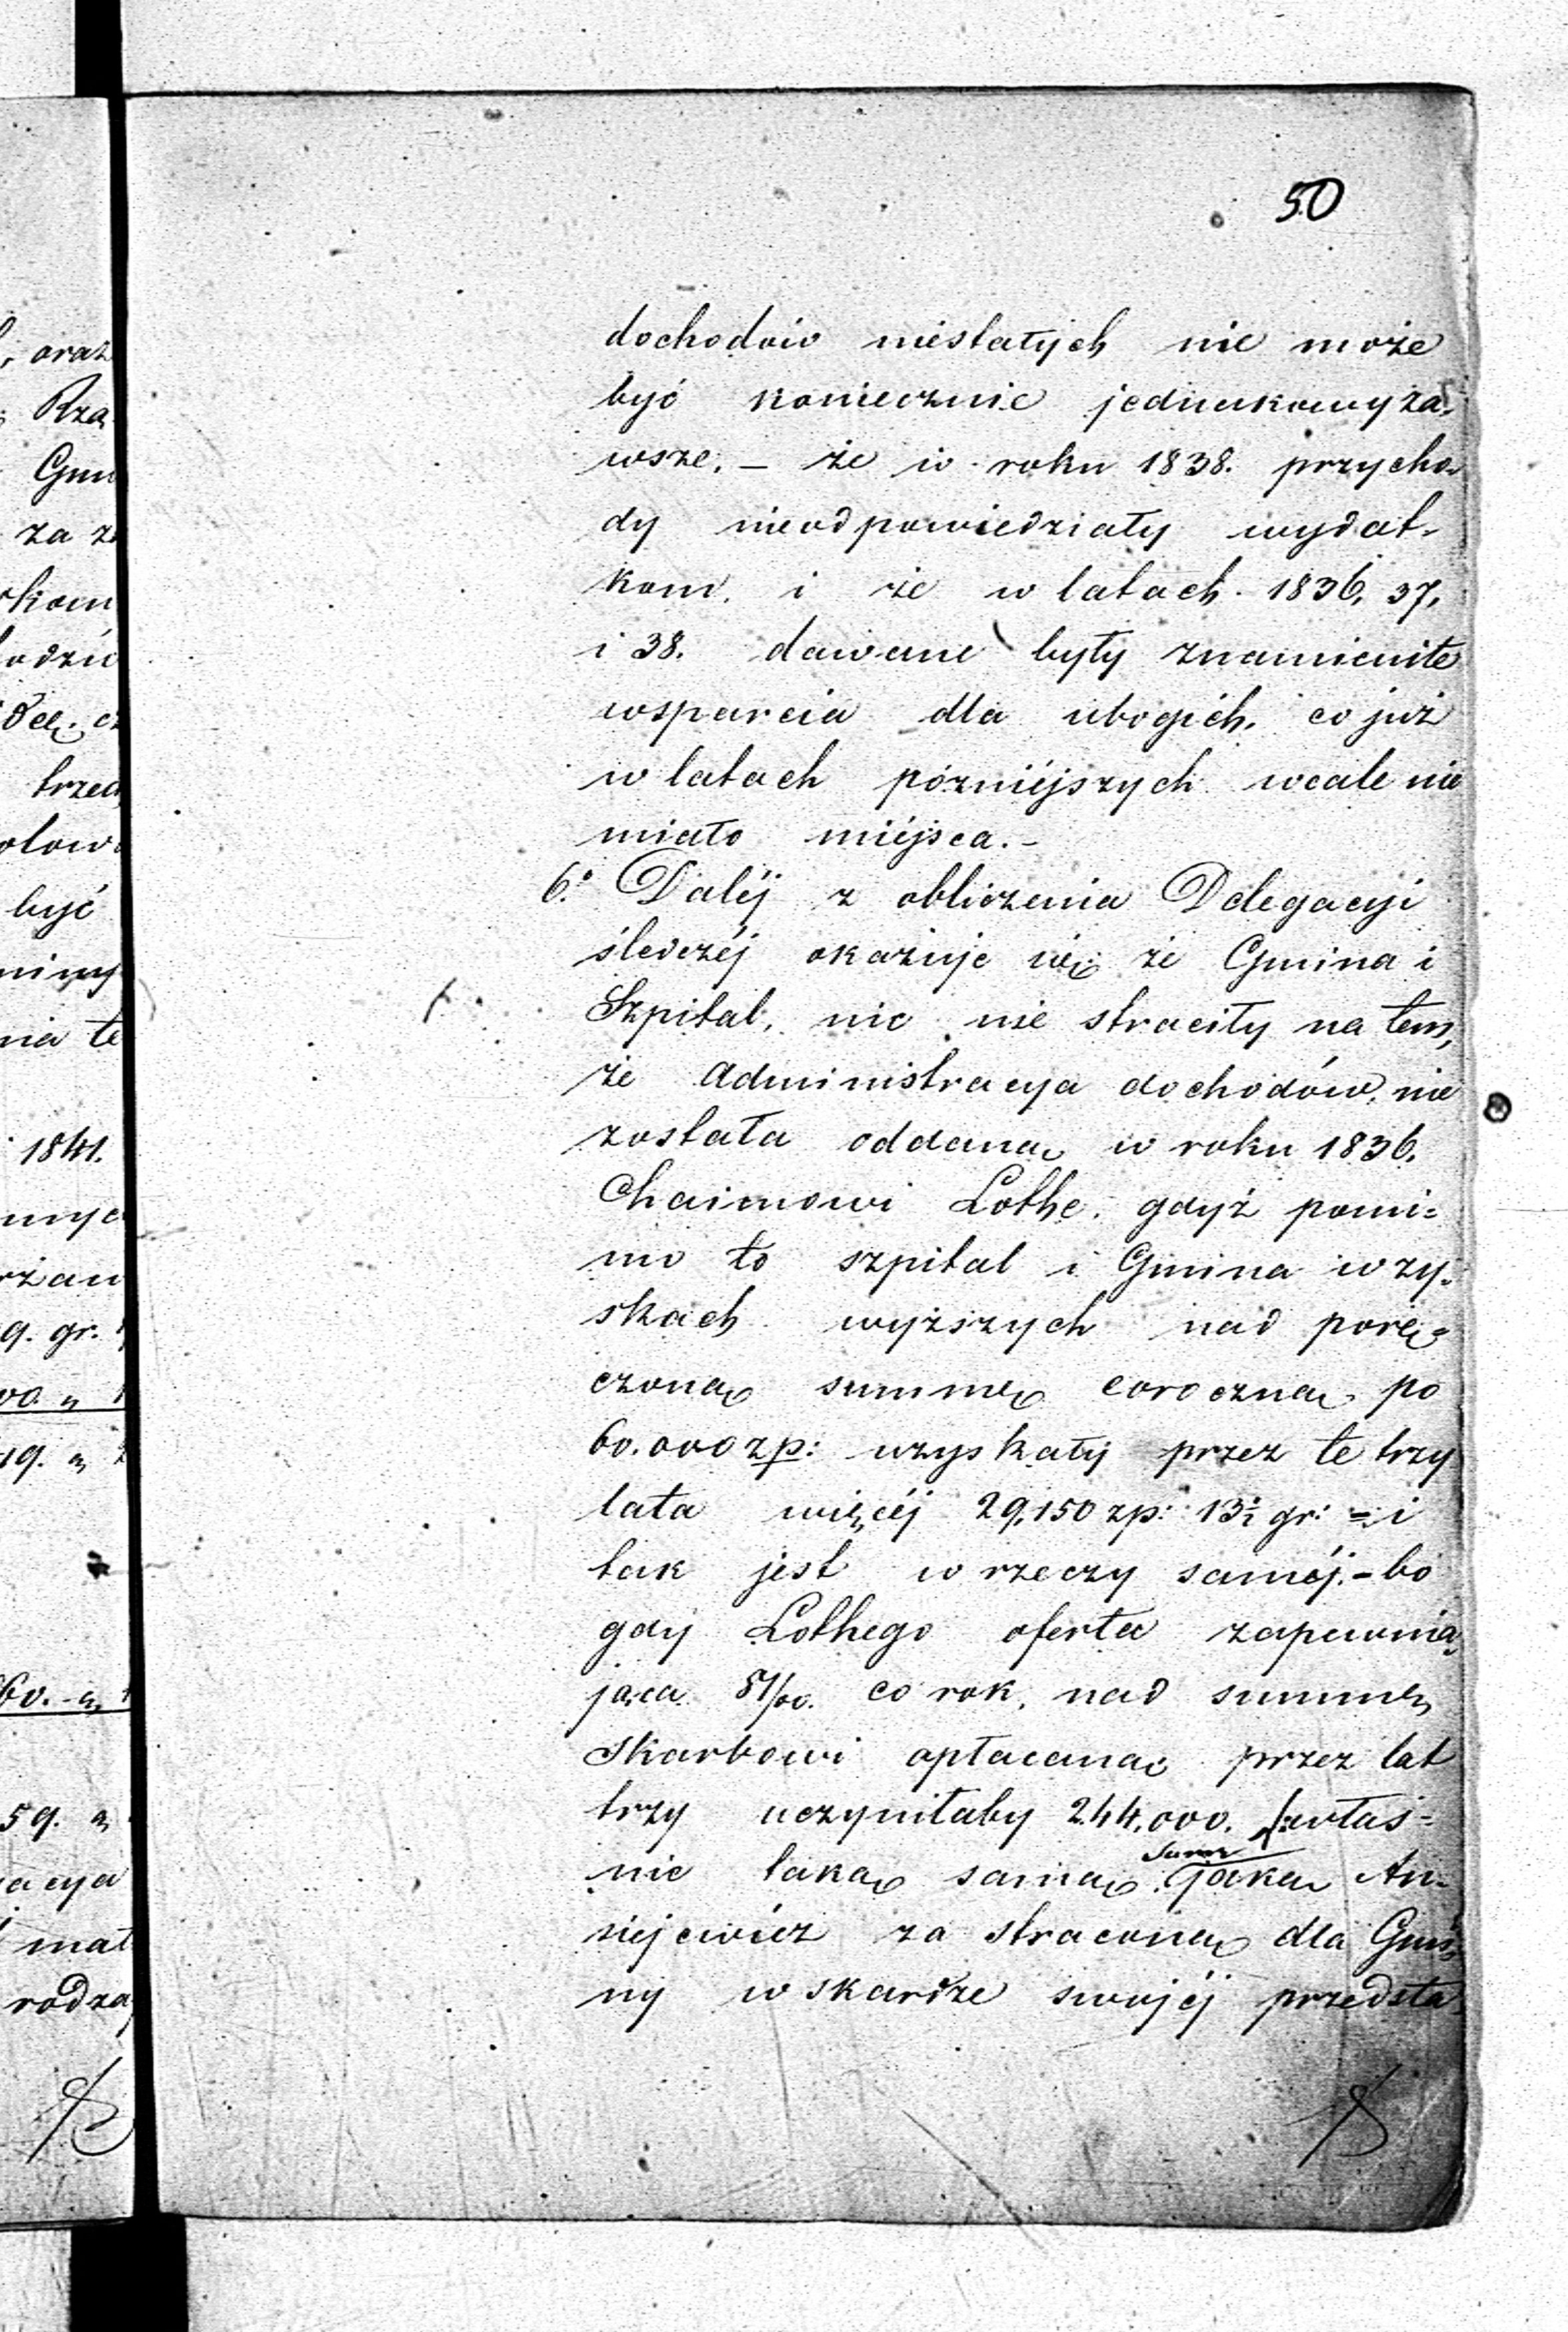 50
dochodów niestałych nie może
być koniecznie jednakowy za-
wsze. – że w roku 1838. przycho-
dy nieodpowiedziały wydat-
kom, i że w latach 1836, 37,
i 38. dawane były znamienite
wsparcia dla ubogich, co już
w latach późniéjszych wcale nie
miało miéjsca. –
6.° Daléj z obliczenia Delegacyi
śledczéj okazuje się że Gmina i
Szpital, nic nie straciły na tem,
że Administracya dochodów, nie
została oddaną w roku 1836.
Chaimowi Lothe, gdyż pomi-
mo to szpital i Gmina w zy-
skach wyższych nad porę-
czoną summę coroczną po
60.000 zp: uzyskały przez te trzy
lata więcéj 29,150 zp: 13½ gr: = i
tak jest w rzeczy saméj. – bo
gdy Lothego oferta zapewnia-
jąca co rok, nad summę
Skarbowi opłacaną przez lat
trzy uczyniłaby 244,000. właś-
nie taką samą jaką An-
siejewicz za straconą dla Gmi-
ny w skardze swojéj przedsta-
, oraz
Rzą
Gmi
za
kom
trzec
być
1841.
9. gr.
19.
60. –
59.
acya
mat
rodza